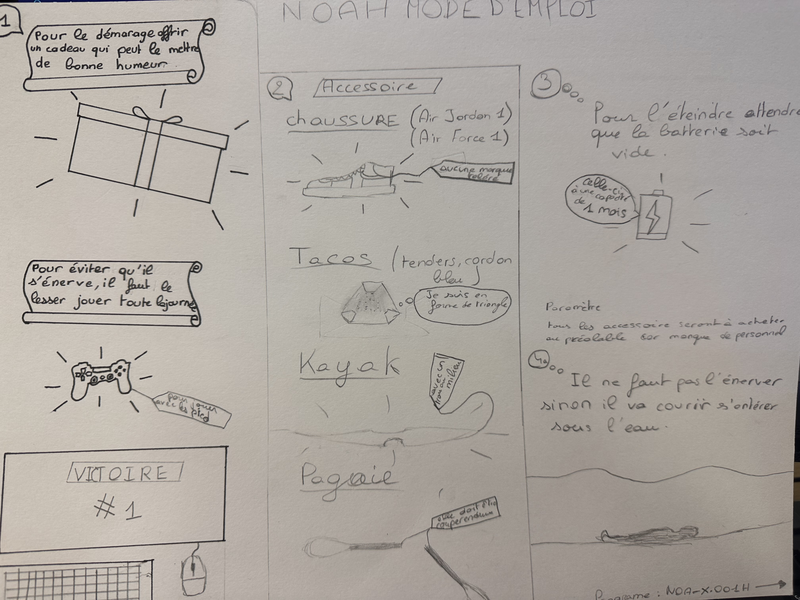 NOAH MODE D'EMPLOI
1
Pour le démarage offrir
un cadeau qui peut le mettre
de bonne humeur
Pour éviter qu'il
s'énerve, il faut le
lesser jouer toute la journé
pour jouer
avec les
VICTOIRE
#1
2
Accessoire
chaussure (Air Jordan 1)
(Air Force 1)
aucune marque
Tacos (tenders, cordon
bleu)
Je suis en
forme de triangle
Kayak
avec un
milieu
Pagaie
elle doit être
3
Pour l'éteindre attendre
que la batterie soit
vide.
celle-ci
à une capacité
de 1 mois
Paramètre
tous les accessoire seront à acheter
au préalable car manque de personnel
4
Il ne faut pas l'énerver
sinon il va courir s'entérer
sous l'eau.
Programe : NOA-X.001H